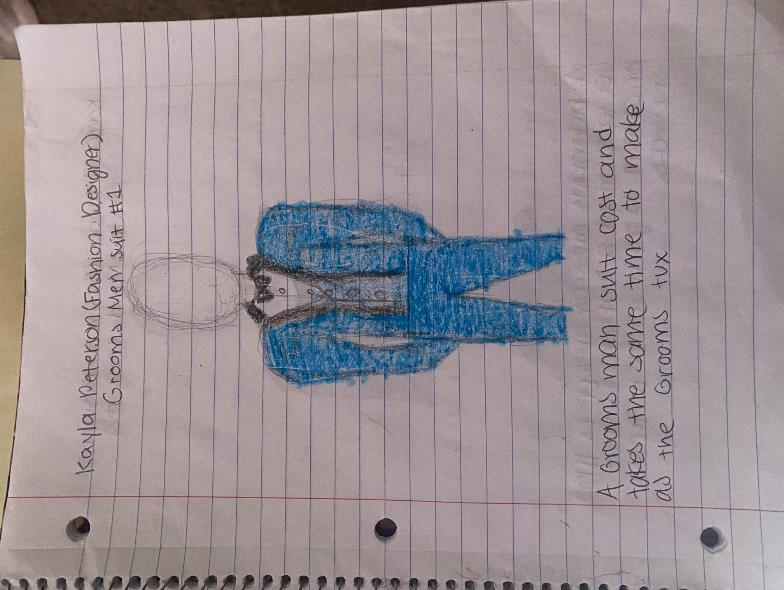 Kayla Peterson (Fashion Designer)
Grooms Men suit #1
A Grooms man suit cost and
takes the same time to make
as the Grooms tux